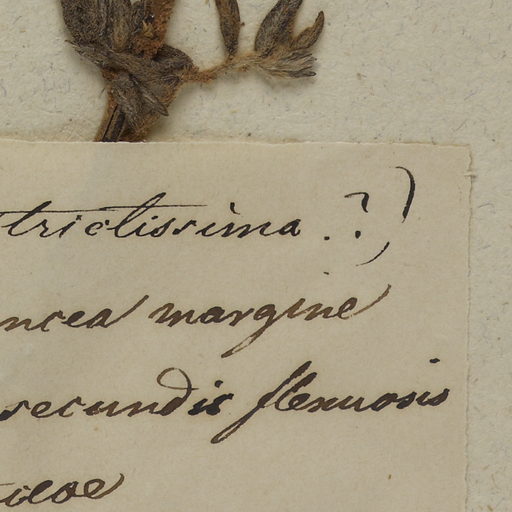 trictissima . ?)
ncea margine
secundis flexuosis